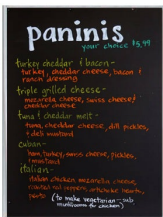 paninis
your choice $5.99
turkey cheddar & bacon-
turkey, cheddar cheese, bacon &
ranch dressing
triple grilled cheese-
mozzarella cheese, swiss cheese &
cheddar cheese
tuna & cheddar melt-
tuna, cheddar cheese, dill pickles,
& deli mustard
cuban-
ham, turkey, swiss cheese, pickles,
& mustard
italian-
italian chicken, mozzarella cheese,
roasted red peppers, artichoke hearts,
pesto
(to make vegetarian - sub
mushrooms for chicken)